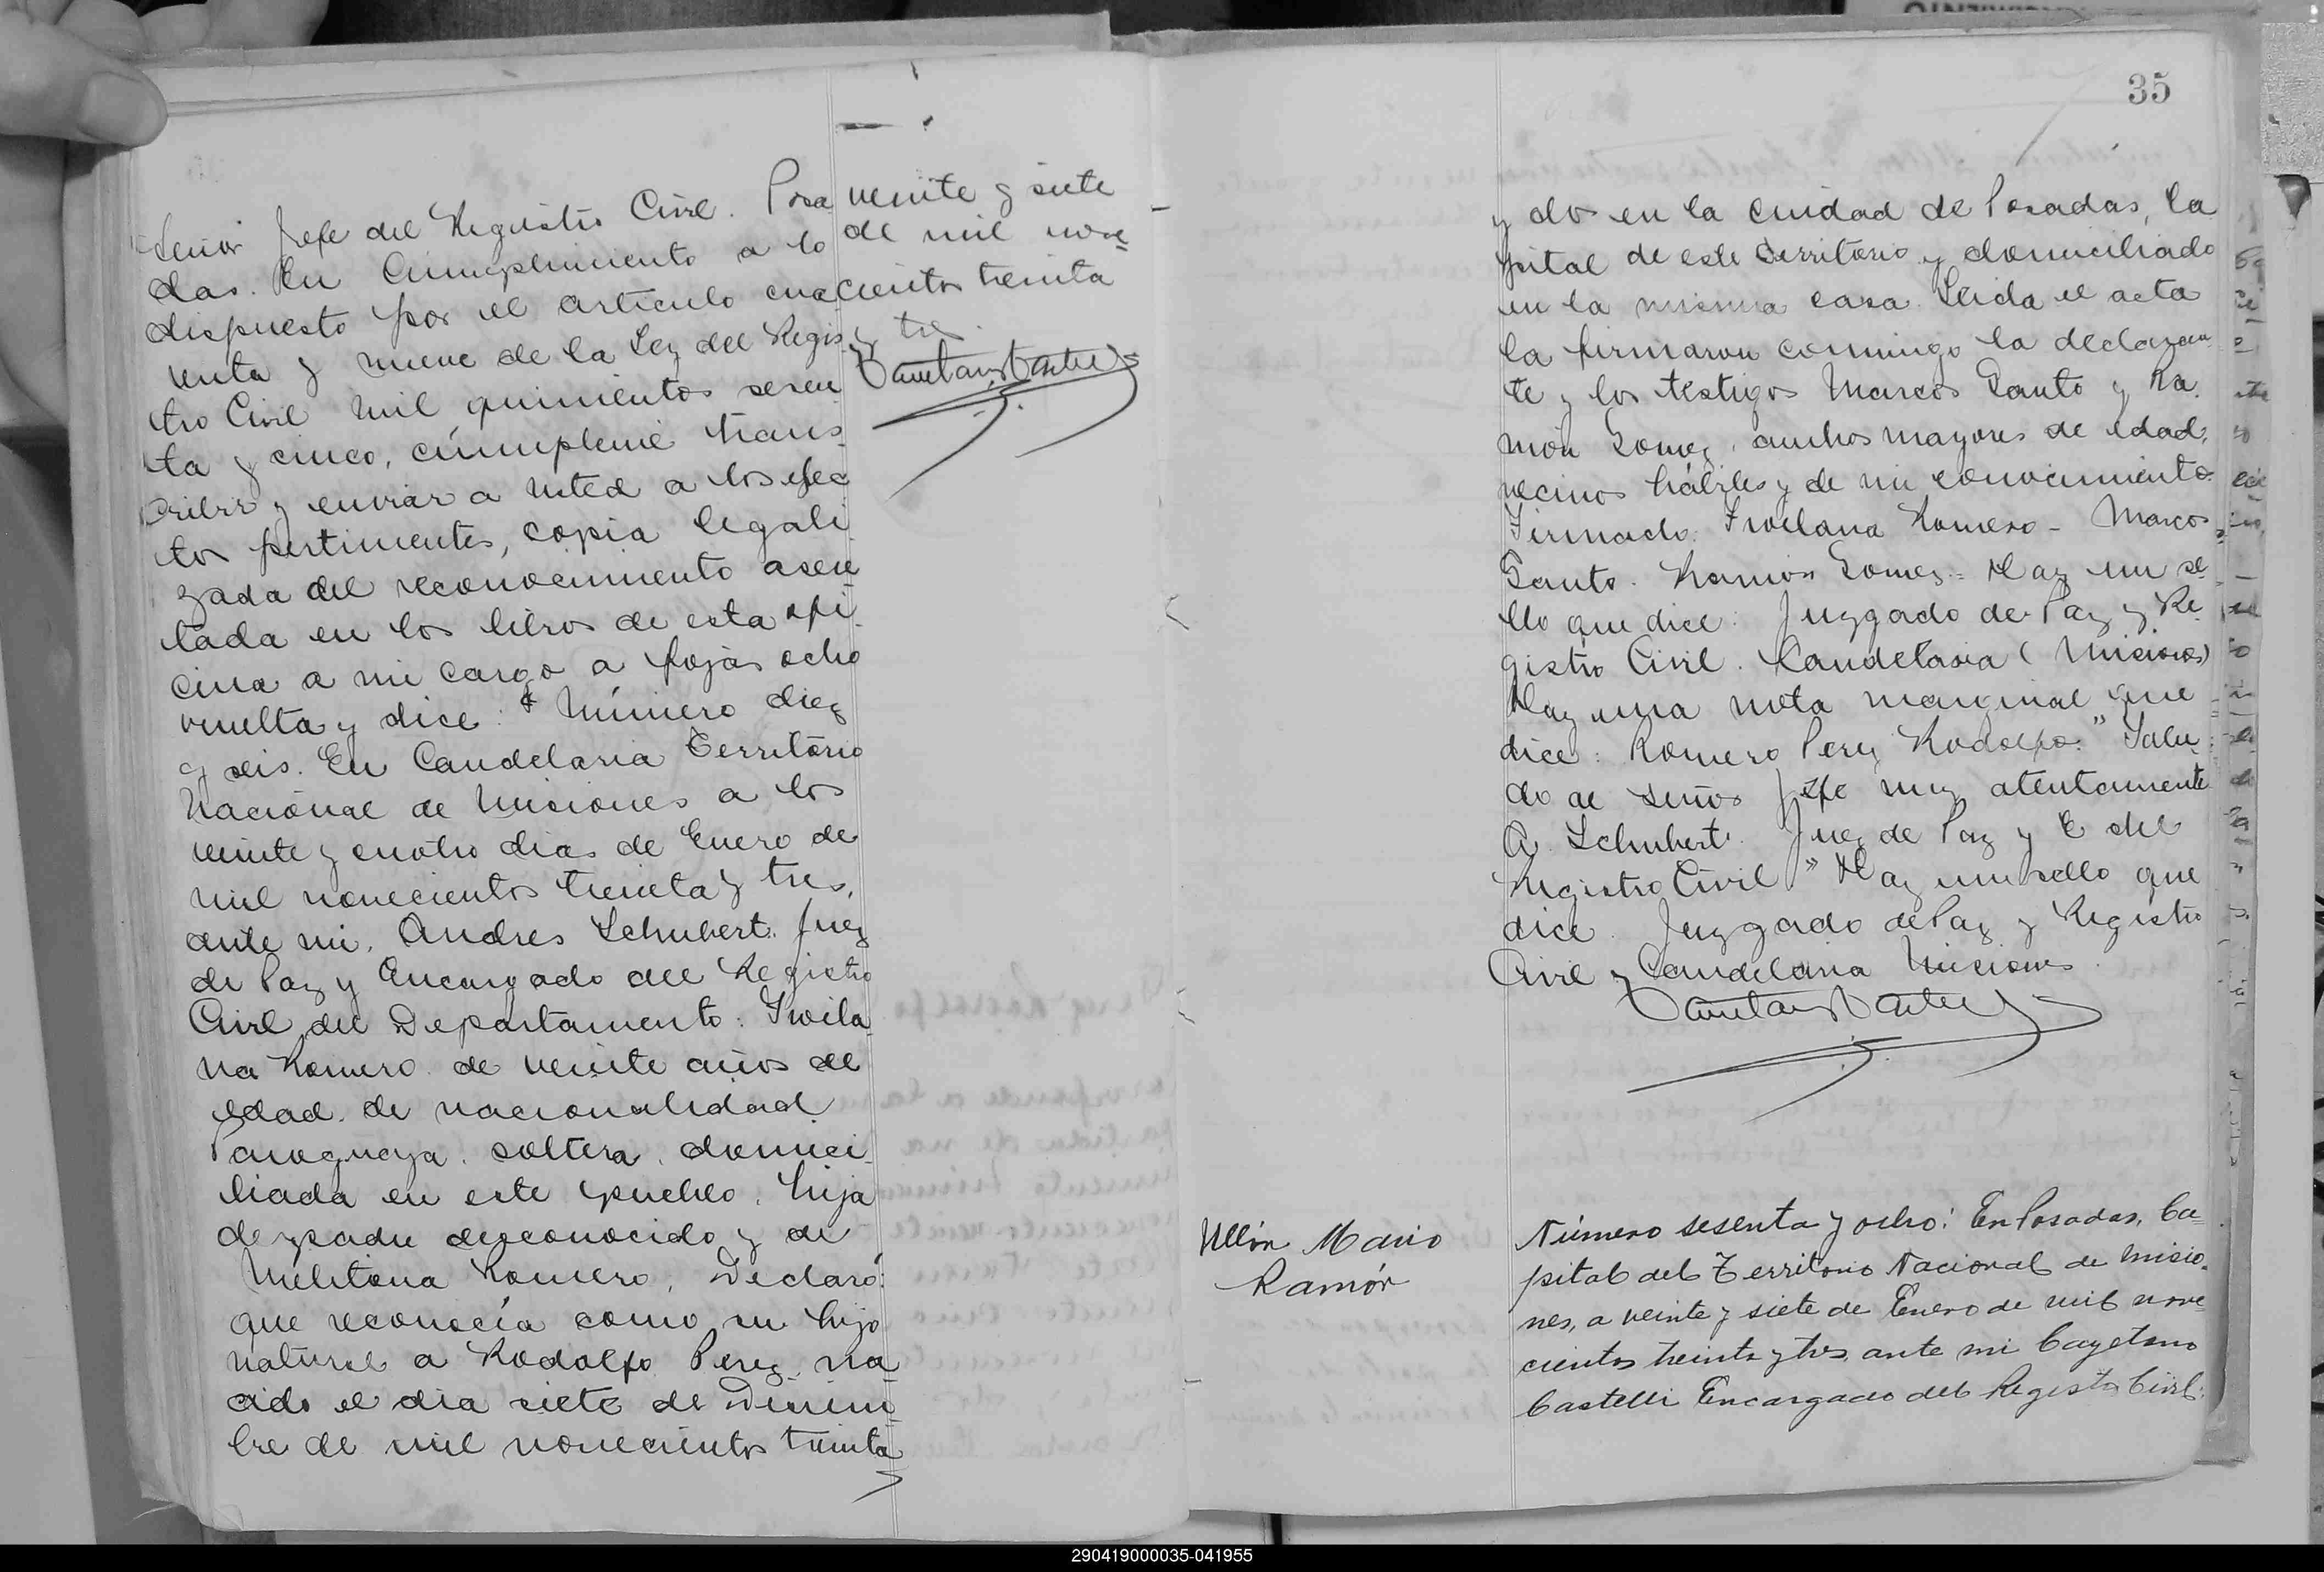 Señor Jefe del Registro Civil. Posa
das. En Cúmplimiento a lo
dispuesto por el articulo cua
renta y nueve de la Ley del Regis-
tro Civil mil quinientos sesen
ta y cinco, cúmpleme trans-
cribir y enviar a usted a los efec
tos pertinentes, copia legali
zada del reconocimiento asen-
tada en los libros de esta ofi
cina a mi cargo a fojas ocho
vuelta y dice: "Número diez
y seis. En Candelaria Territorio
Nacional de Misiones a los
veinte y cuatro dias de Enero de
mil novecientos treinta y tres,
ante mi, Andres Schubert. Juez
de Paz y Encargado del Registro
Civil del Departamento: Froila
na Romero de veinte años de
edad. de nacionalidad
Paraguaya. soltera, domici-
liada en este pueblo. hija
de padre desconocido y de
Melitona Romero, Declaró:
que reconocía como su hijo
natural a Rodolfo Perez, na
cido el dia siete de Diciem-
bre de mil novecientos treinta
veinte y siete
de mil nove-
cientos treinta
y tres
35
y dos en la ciudad de Posadas, Ca
pital de este Territorio y domiciliado
en la misma casa. Leida el acta
la firmaron conmigo la declaran
te y los testigos Marcos Santo y Ra
món Gomez, ambos mayores de edad,
vecinos hábiles y de mi conocimiento.
Firmado. Froilana Romero - Marcos
Santo. Ramon Gomez = Hay un se-
llo que dice: Juzgado de Paz y Re
gistro Civil. Candelaria (Misiones)
Hay una nota marginal que
dice: Romero Perez Rodolfo." Salu
do al señor Jefe muy atentamente
A. Schubert. Juez de Paz y E. del
Registro Civil" Hay un sello que
dice. Juzgado de Paz y Registro
Civil, Candelaria Misiones.
Ullón Mario
Ramón
Número sesenta y ocho: En Posadas, Ca-
pital del Territorio Nacional de Misio-
nes, a veinte y siete de Enero de mil nove
cientos treinta y tres, ante mi Cayetano
Castelli Encargado del Registro Civil:
290419000035-041955